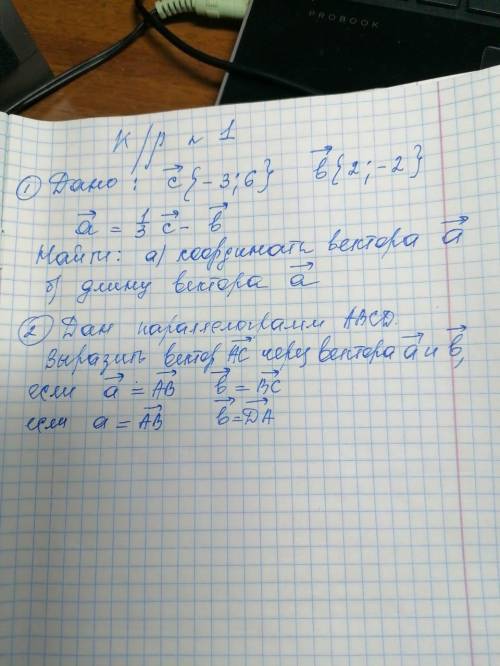 PROBOOK
К/р №1
① Дано: c⃗{-3;6} b⃗{2;-2}
a⃗ = 1/3 c⃗ - b⃗
Найти: а) координаты вектора a⃗
б) длину вектора a⃗
② Дан параллелограмм ABCD.
Выразить вектор AC⃗ через вектора a⃗ и b⃗,
если a⃗ = AB⃗ b⃗ = BC⃗
если a = AB⃗ b⃗ = DA⃗